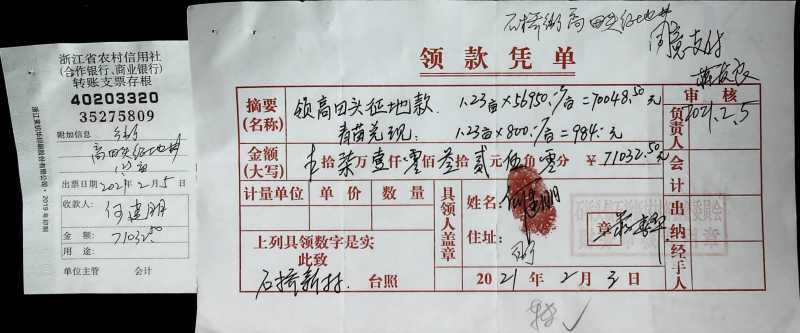 浙江省农村信用社
(合作银行、商业银行)
转账支票存根
40203320
35275809
附加信息
高田头征地款
1.23亩
出票日期 2021年2月5日
收款人: 何建明
金 额: 71032.50
用 途:
单位主管 会计
同意支付
2021.2.5
领款凭单
审核
摘要
(名称)
领高田头征地款 1.23亩×56950./亩=70048.50元
青苗兑现 1.23亩×800./亩=984.元
金额
(大写)
拾柒万壹仟零佰叁拾贰元伍角零分 ¥71032.50元
计量单位 单价 数量
具领人盖章
姓名: 何建明
住址:
章
上列具领数字是实
此致
石桥新村 台照
2021年2月3日
负责人
会计
出纳
经手人